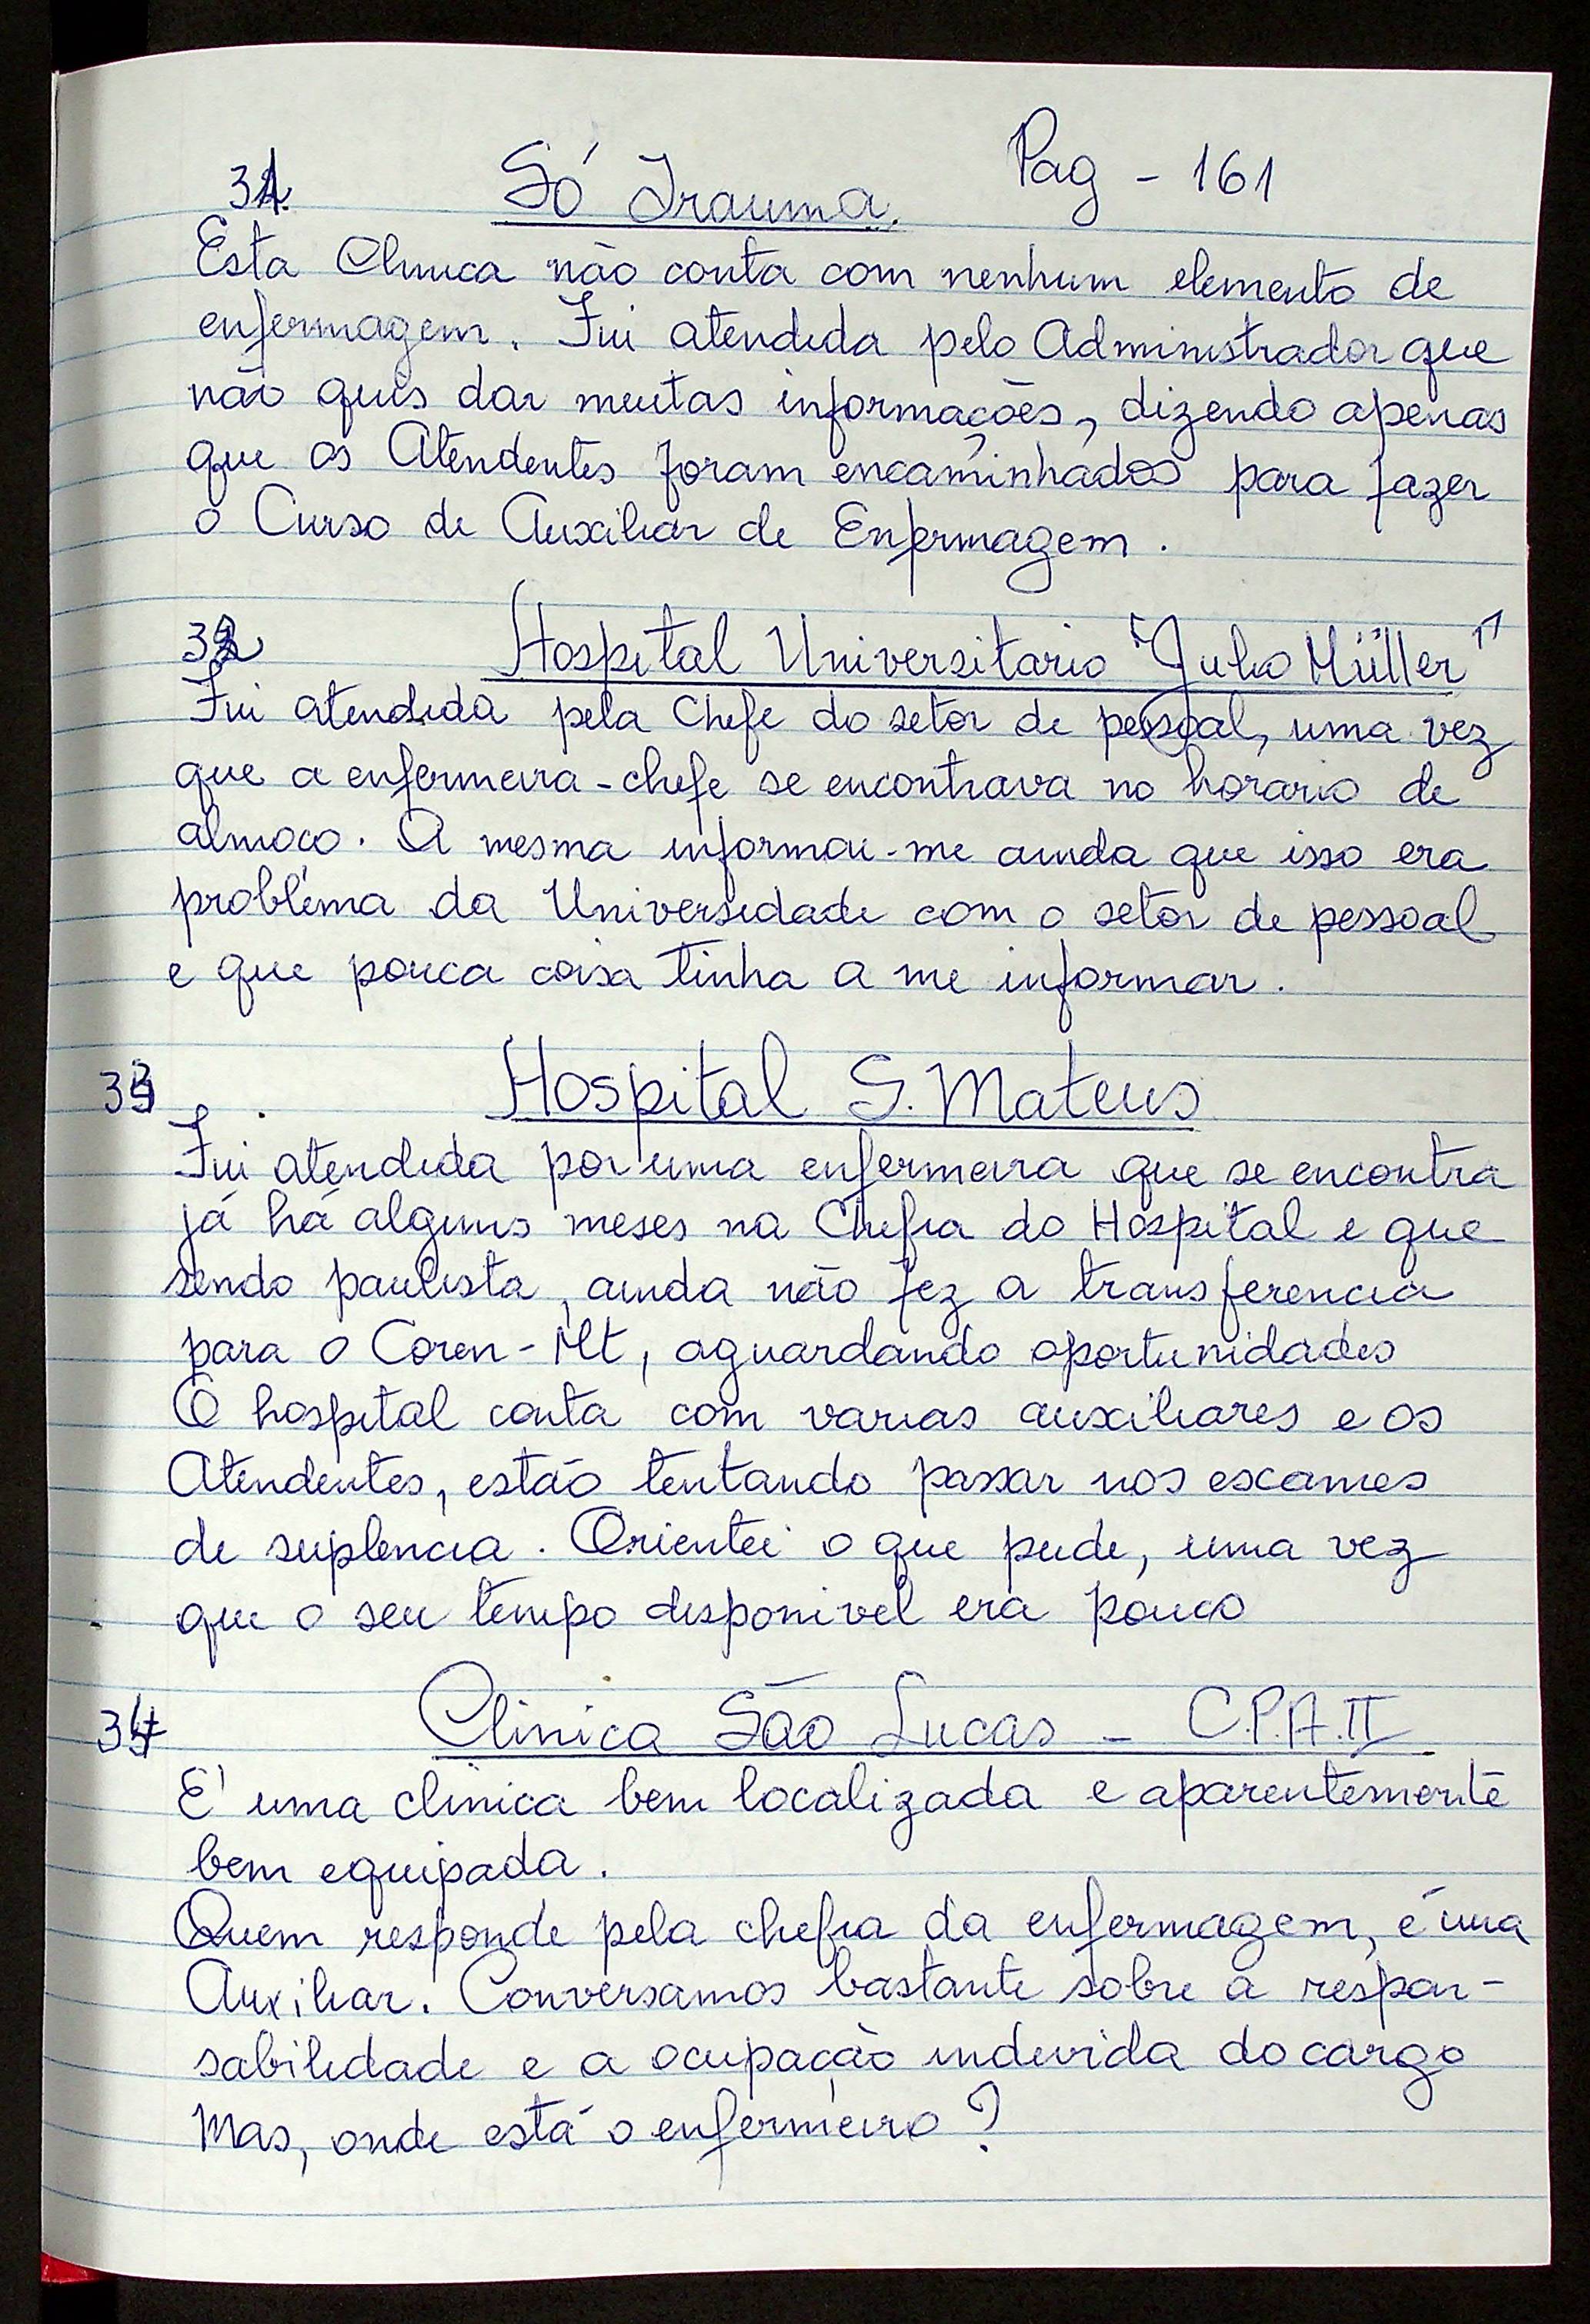 Pag - 161
31. Só Trauma.
Esta Clinica não conta com nenhum elemento de
enfermagem. Fui atendida pelo Administrador que
não quis dar muitas informações, dizendo apenas
que os Atendentes foram encaminhados para fazer
o Curso de Auxiliar de Enfermagem.
32 Hospital Universitario "Julio Müller"
Fui atendida pela Chefe do setor de pessoal, uma vez
que a enfermeira-chefe se encontrava no horario de
almoco. A mesma informou-me ainda que isso era
problema da Universidade com o setor de pessoal
e que pouca coisa tinha a me informar.
33 Hospital S. Mateus
Fui atendida por uma enfermeira que se encontra
já há alguns meses na Chefia do Hospital e que
sendo paulista, ainda não fez a transferencia
para o Coren-Mt, aguardando oportunidades
O hospital conta com varias auxiliares e os
Atendentes, estão tentando passar nos escames
de suplencia. Orientei o que pude, uma vez
que o seu tempo disponivel era pouco
34 Clinica São Lucas - C.P.A.II.
E' uma clinica bem localizada e aparentemente
bem equipada.
Quem responde pela chefia da enfermagem, é uma
Auxiliar. Conversamos bastante sobre a respon-
sabilidade e a ocupação indevida do cargo
Mas, onde está o enfermeiro?